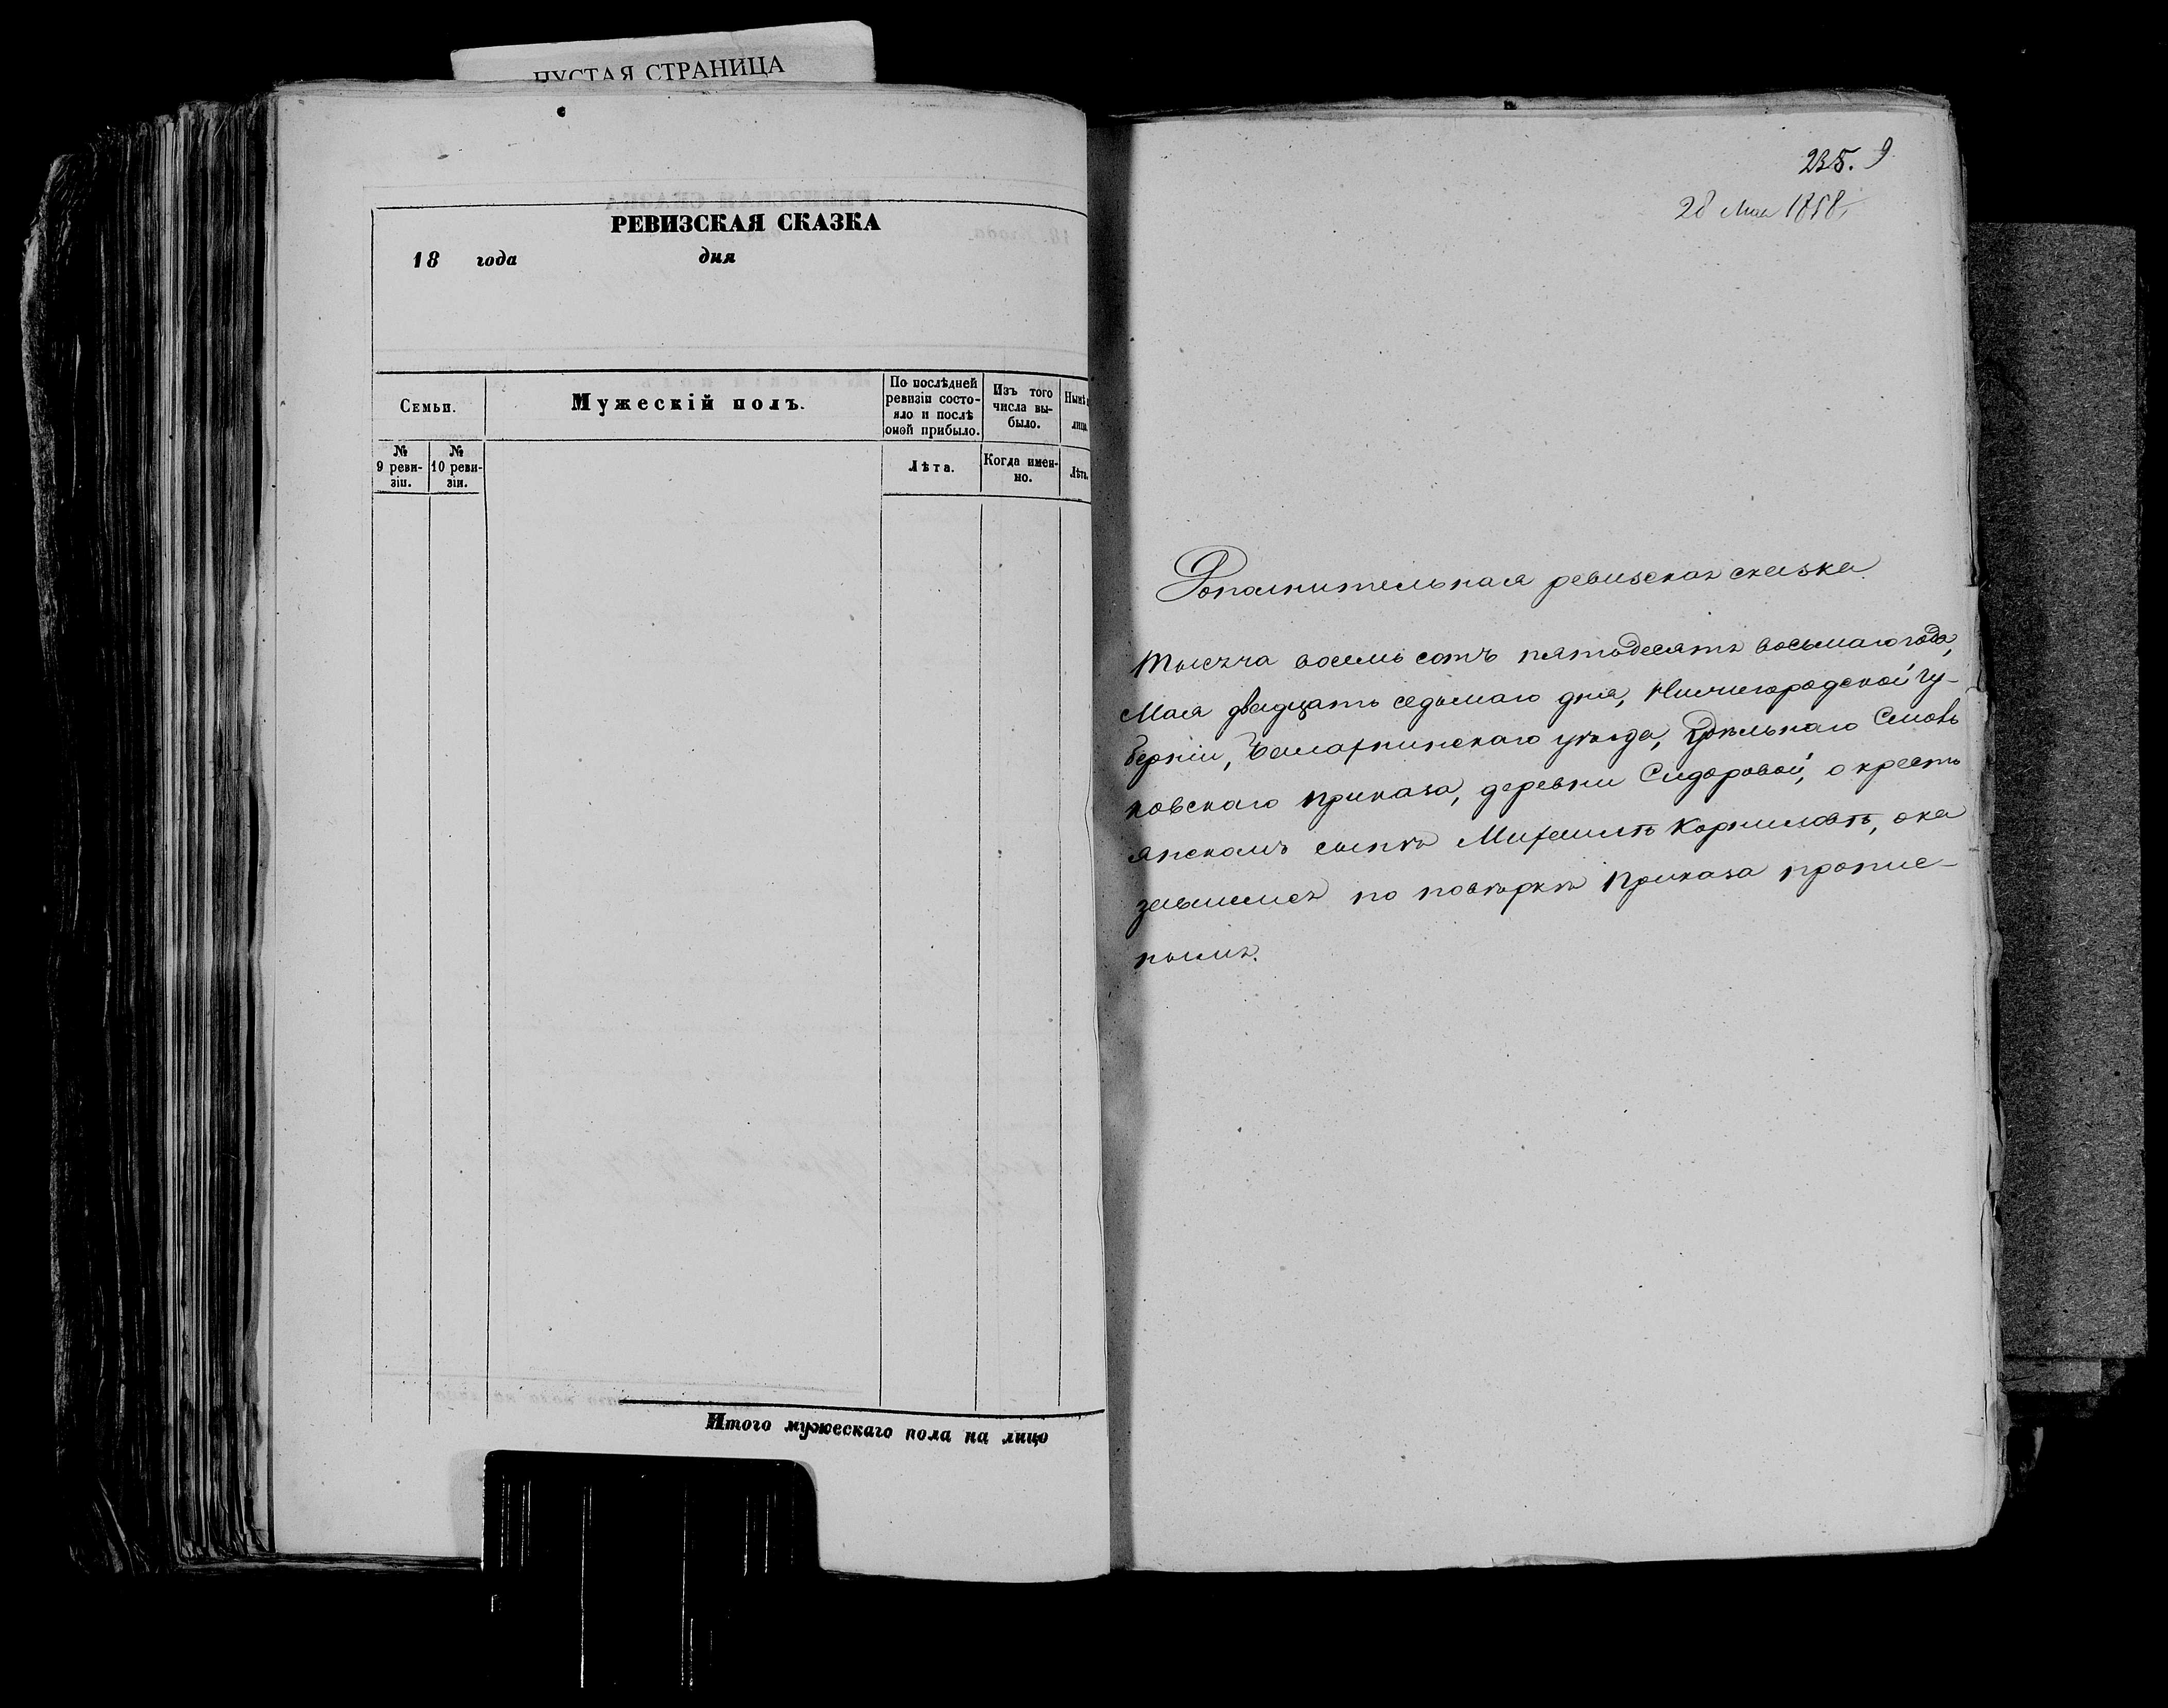 ПУСТАЯ СТРАНИЦА
РЕВИЗСКАЯ СКАЗКА
18 года дня
Семьи.
Мужескій полъ.
По послѣдней ревизіи состояло и послѣ оной прибыло.
Изъ того числа выбыло.
Нынѣ
лицо
№ 9 ревизіи.
№ 10 ревизіи.
Лѣта.
Когда именно.
Лѣта.
Итого мужескаго пола на лицо
235. 9
28 Мая 1858
Дополнительная ревизская сказка.
Тысяча восемь сотъ пятьдесятъ восьмаго года,
Мая двадцать седьмаго дня, Нижегородской гу-
берніи, уѣзда, Удѣльнаго
приказа, деревни Сидоровой, о кресть
янскомъ сынѣ Корниловѣ, ока
завшемся по повѣркѣ Приказа пропис-
нымъ.